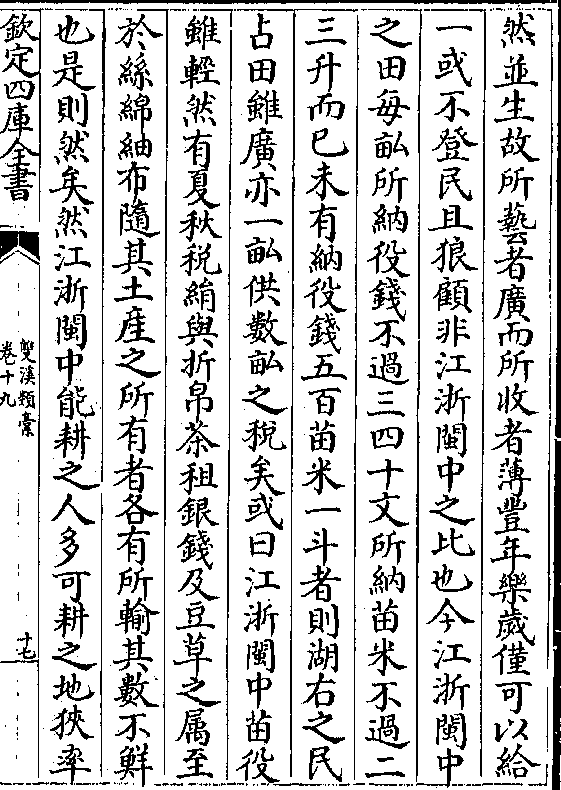 然並生故所藝者廣而所收者薄豐年樂歲僅可以給
一或不登民且狼顧非江浙閩中之比也今江浙閩中
之田每畝所納役錢不過三四十文所納苗米不過二
三升而已未有納役錢五百苗米一斗者則湖右之民
占田雖廣亦一畝供數畝之稅矣或曰江浙閩中苗役
雖輕然有夏秋税絹與折帛茶租銀錢及豆草之属至
於絲綿紬布隨其土産之所有者各有所輸其數不鮮
也是則然矣然江浙閩中能耕之人多可耕之地狹率
欽定四庫全書
雙溪類稾
卷十九
十七